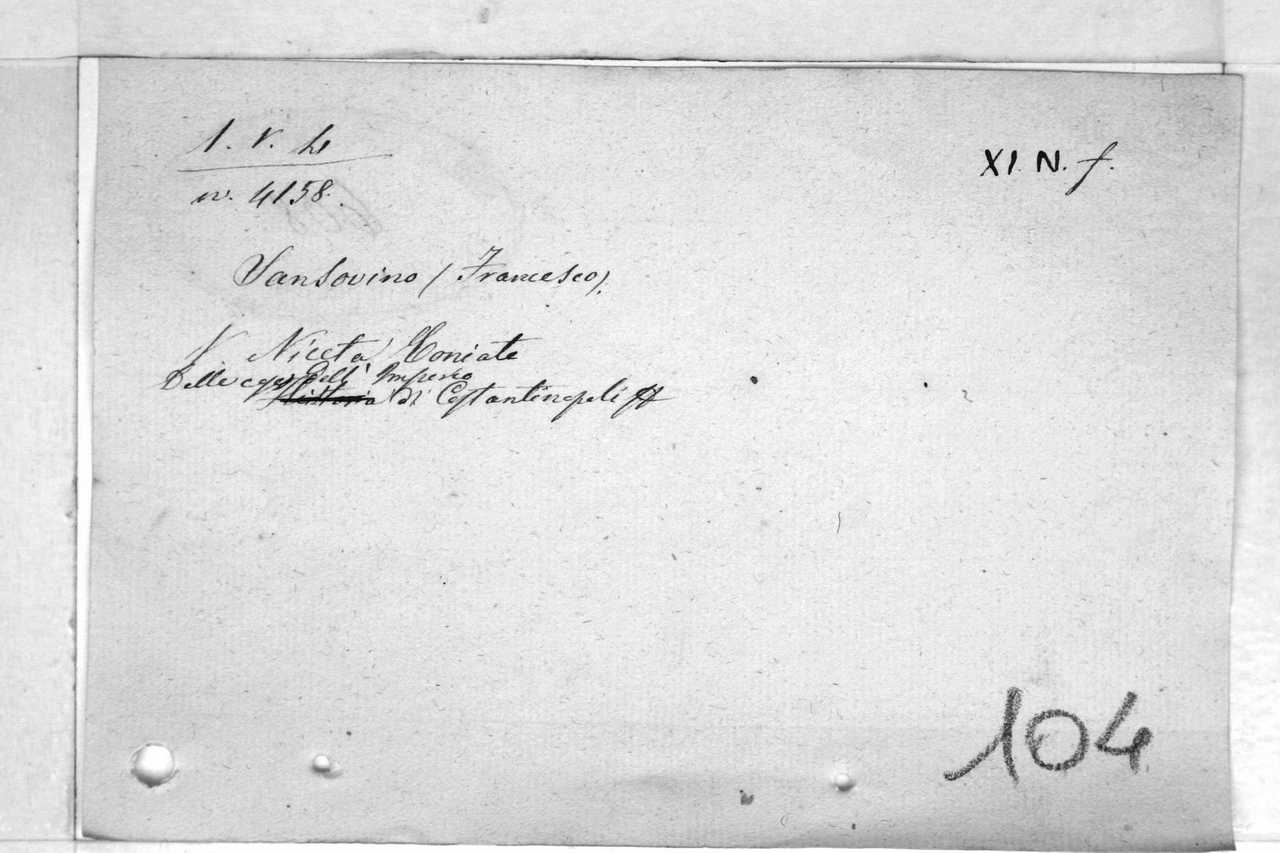 1. V. 4
XI. N. f.
n. 4158.
Sansovino (Francesco).
V. Niceta Coniate
Delle cose dell' Imperio
di Costantinopoli
104